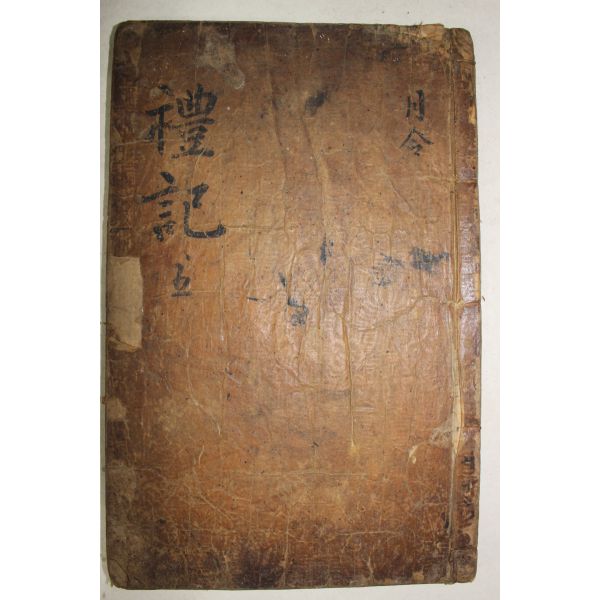 禮記 五
月令